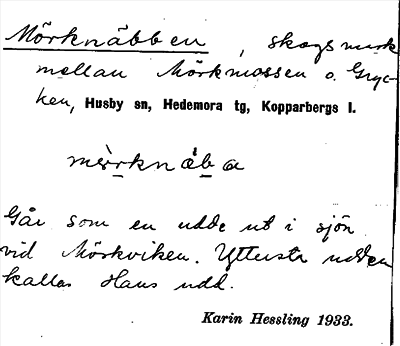 Mörknäbben, skogsmark
mellan Mörkmossen o. Gryc-
ken, Husby sn, Hedemora tg, Kopparbergs l.
mö̀rknába
Går som en udde ut i sjön
vid Mörkviken. Yttersta udden
kallas Hans udd.
Karin Hessling 1933.